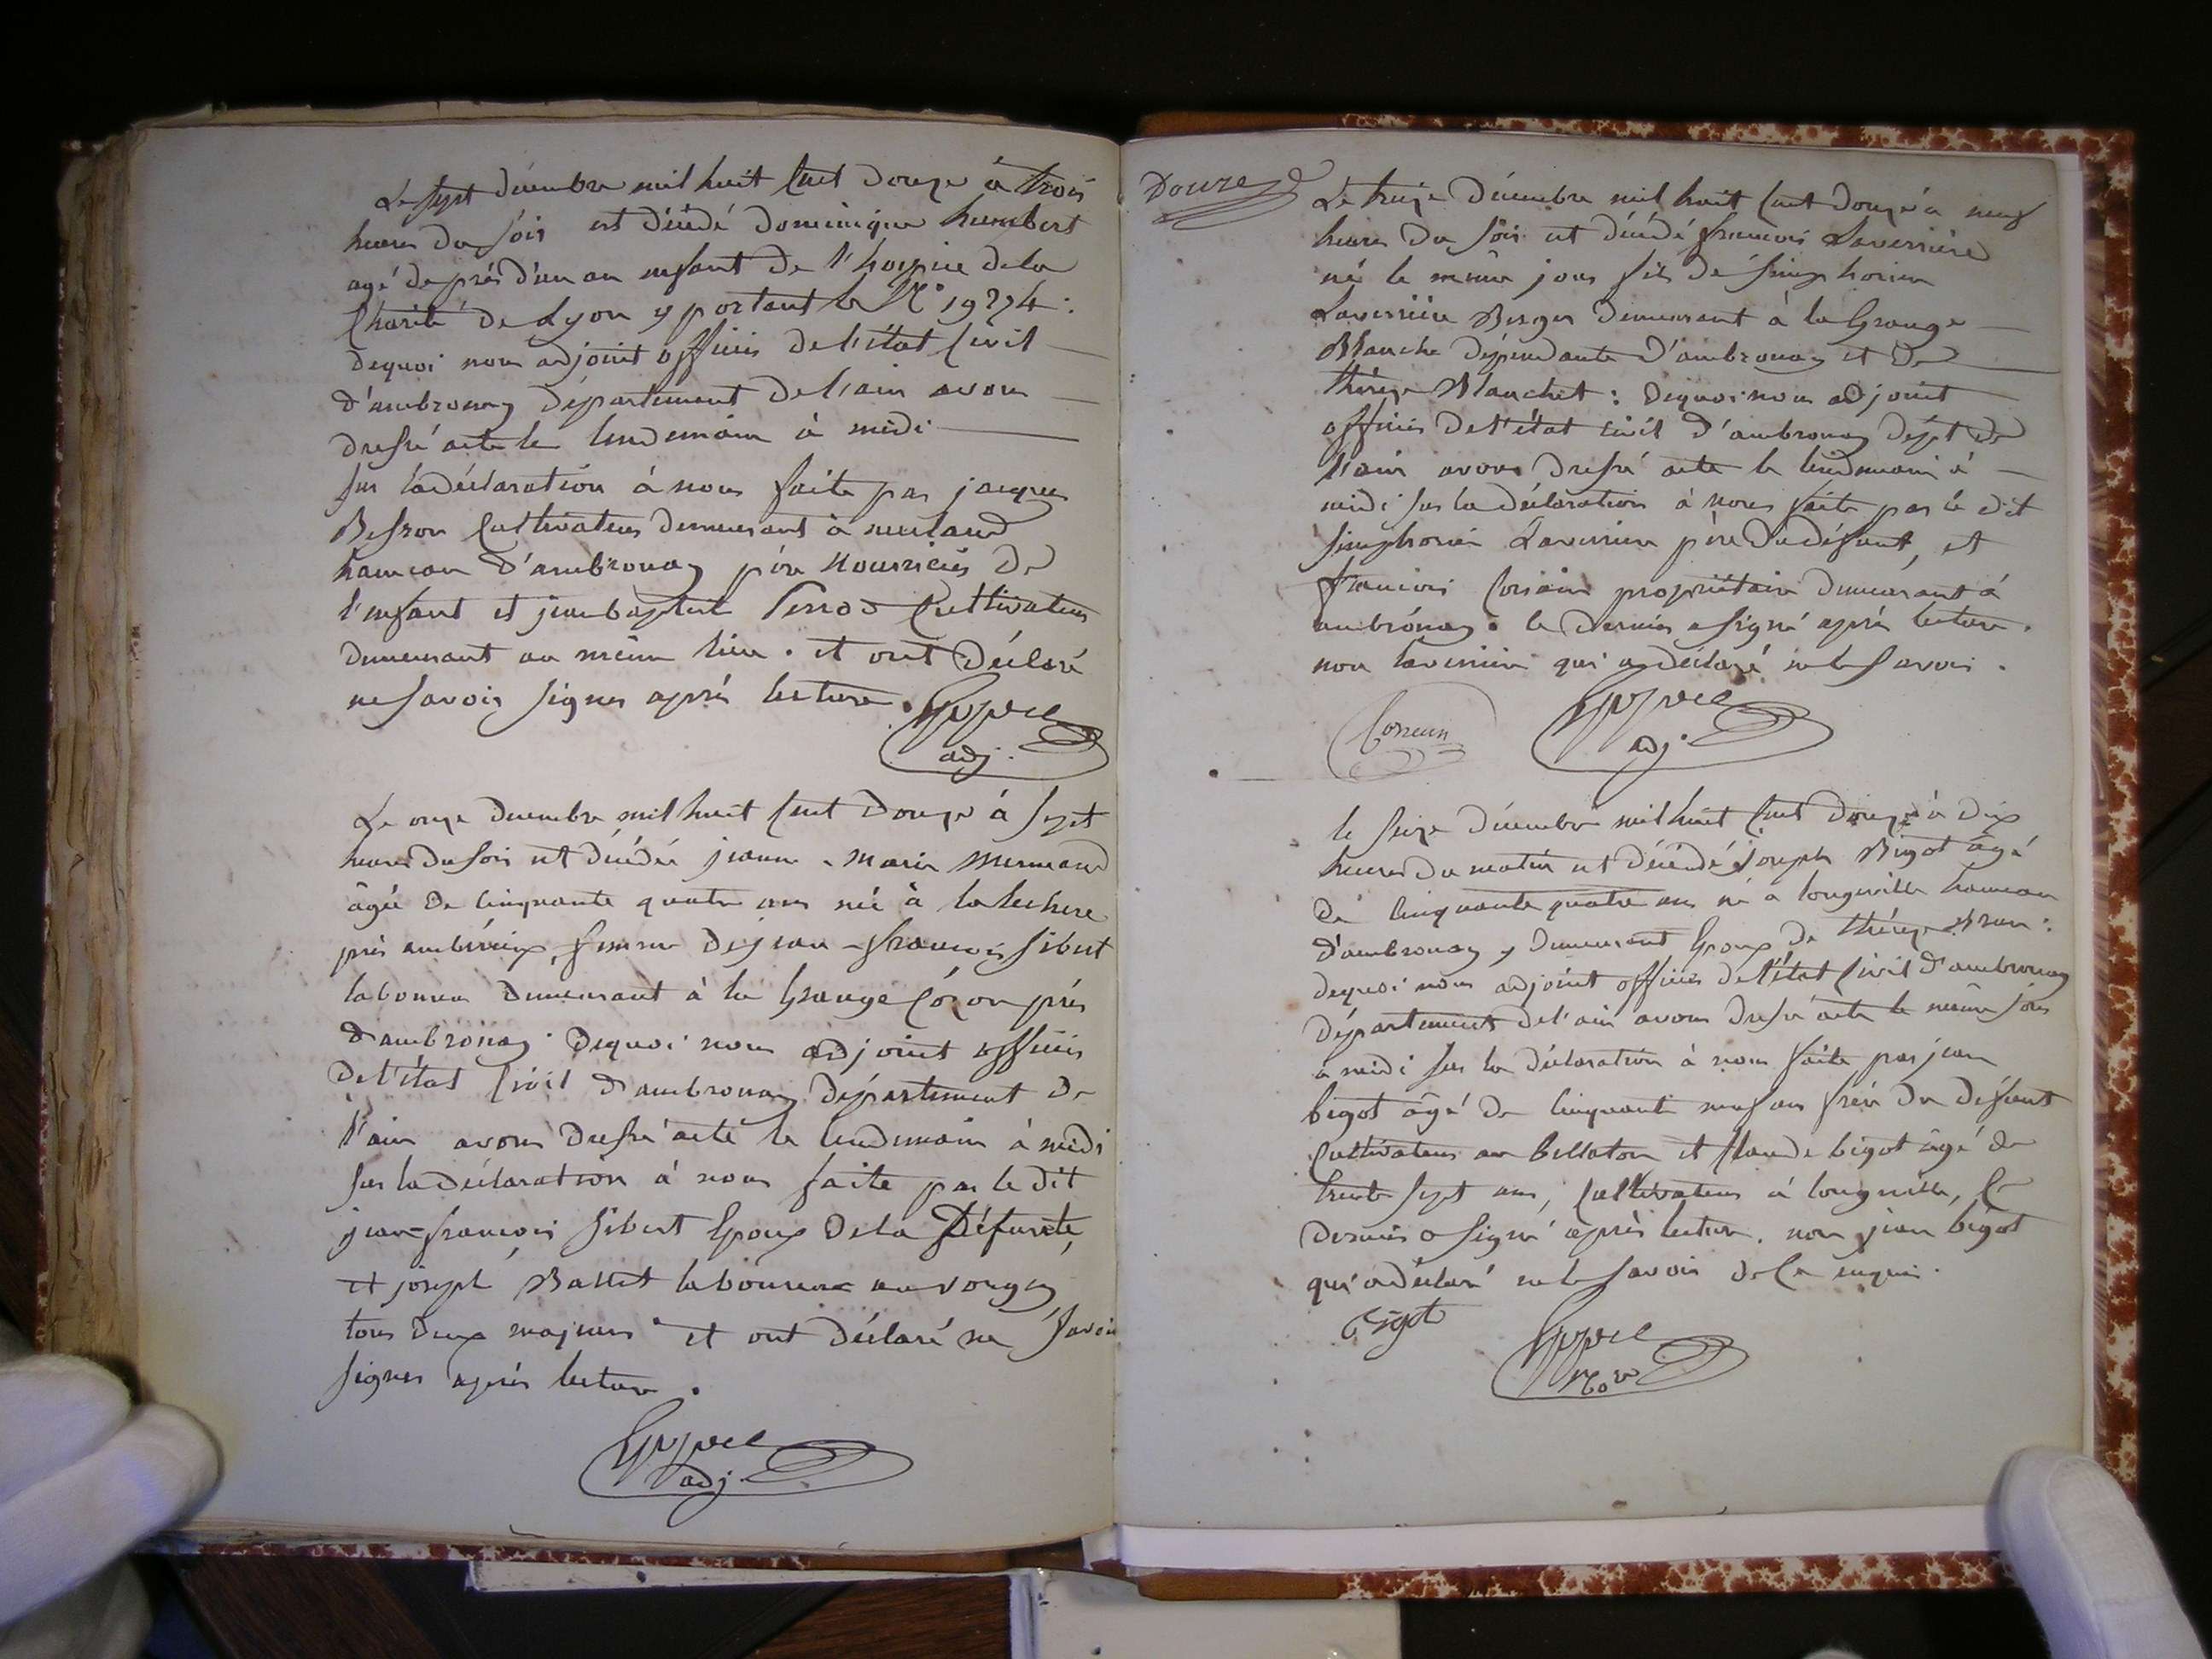 Le sept décembre mil huit cent douze à trois
heures du soir est décédé dominique humbert
agé de près d'un an enfant de l'hospice de la
Charité de Lyon y portant le N.°
dequoi nous adjoint officier de l'état civil
d'ambronay département de l'ain avons
dressé acte le lendemain à midi
sur la déclaration à nous faite par jacques
Besson Cultivateur demeurant à
hameau d'ambronay père nourricier de
l'enfant et jean baptiste Cultivateur
demeurant au même lieu. et ont déclaré
ne savoir signer après lecture.
adj.
Le onze décembre mil huit cent douze à sept
heures du soir est décédée jeanne-marie mermand
âgée de cinquante quatre ans née à la lechere
près femme de jean-françois sibert
laboureur demeurant à la Grange près
d'ambronay. dequoi nous adjoint officier
de l'état civil d'ambronay département de
l'ain avons dressé acte le lendemain à midi
sur la déclaration à nous faite par le dit
jean=françois sibert Epoux de la Défunte,
et joseph laboureur au
tous deux majeurs et ont déclaré ne savoir
signer après lecture.
adj.
Douze
Le treize décembre mil huit cent douze à neuf
heures du soir est décédé françois Laverrière
né le même jour fils de simphorien
Laverrière Berger demeurant à la Grange
Blanche dépendante d'ambronay et de
thérèze Blanchet: dequoi nous adjoint
officier de l'état civil d'ambronay dépt de
l'ain avons dressé acte le lendemain à
midi sur la déclaration à nous faite par le dit
simphorien Laverrière père du défunt, et
françois propriétaire demeurant à
ambronay. le dernier a signé après lecture.
non laverrière qui a déclaré ne le savoir.
adj.
le seize décembre mil huit cent douze à dix
heures du matin est décédé joseph Bigot âgé
de cinquante quatre ans né à longeville hameau
d'ambronay y demeurant Epoux de thérèze Bran:
dequoi nous adjoint officier de l'état civil d'ambronay
département de l'ain avons dressé acte le même jour
à midi sur la déclaration à nous faite par jean
bigot âgé de cinquante neuf ans frère du défunt
Cultivateur au bellaton et Claude bigot âgé de
trente sept ans, Cultivateur à longeville, Ce
dernier a signé après lecture. non jean bigot
qui a déclaré ne le savoir de ce enquis.
bigot